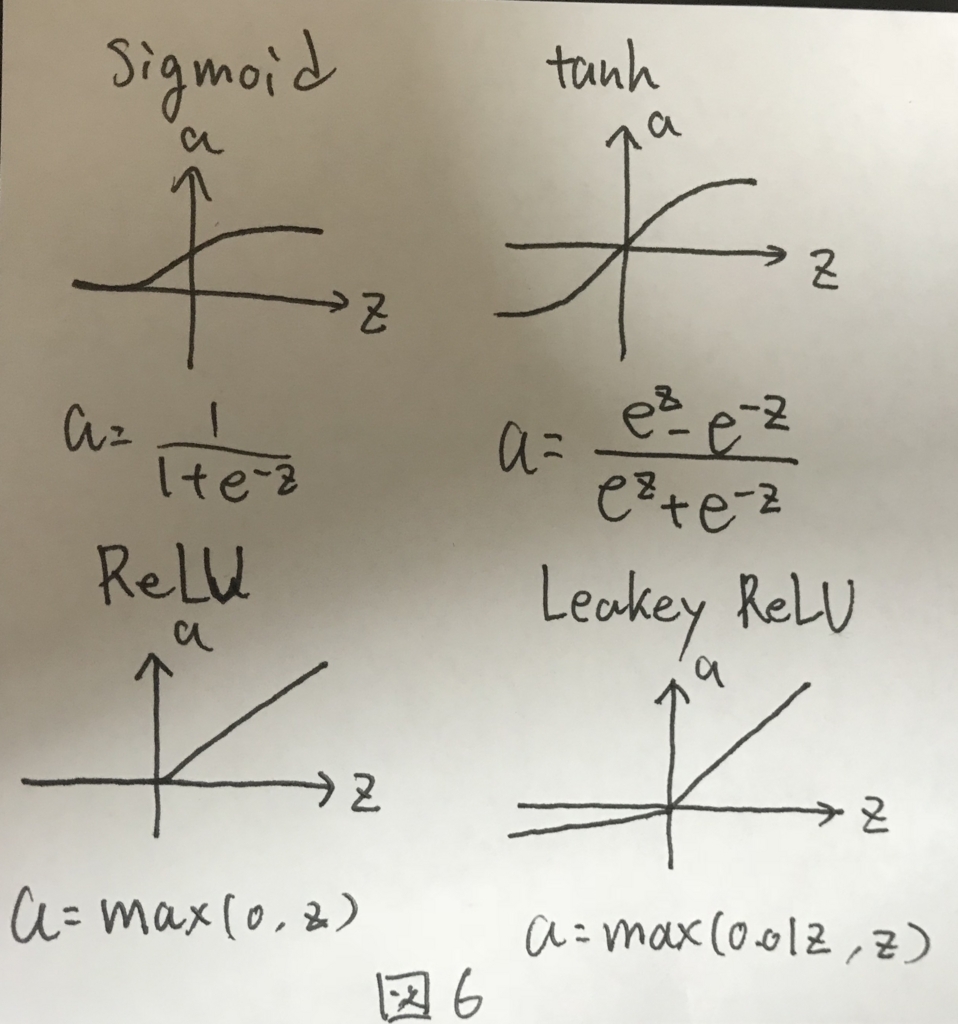 Sigmoid
a
z
a = 1/(1+e^-z)
tanh
a
z
a = (e^z - e^-z)/(e^z + e^-z)
ReLU
a
z
a = max(0, z)
Leakey ReLU
a
z
a = max(0.01z, z)
图 6